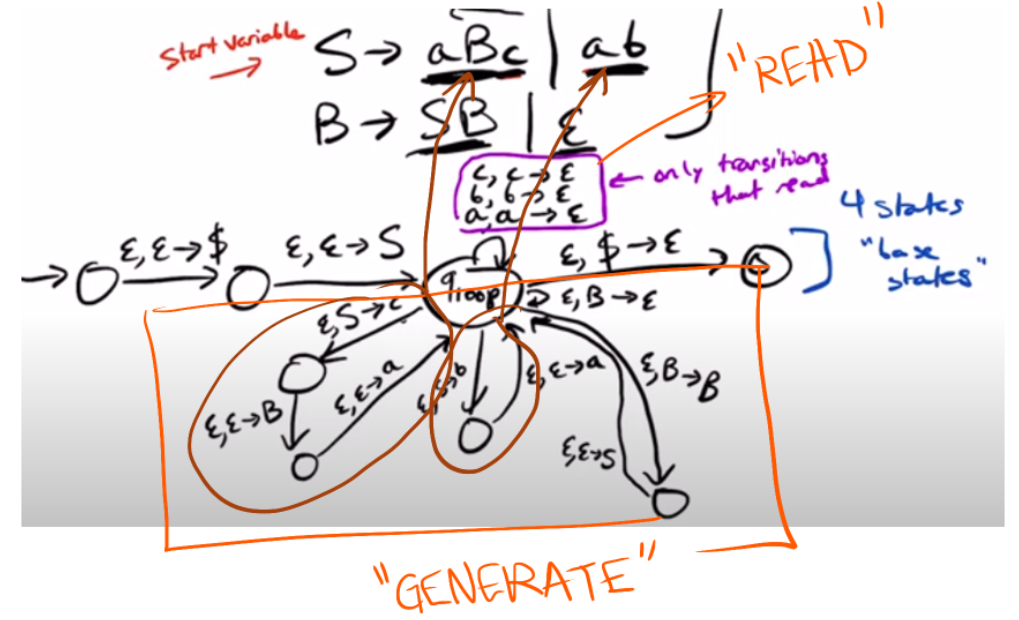 Start variable
S → aBc | ab
B → SB | ε
"READ"
c, c → ε
b, b → ε
a, a → ε
← only transitions
that read
4 states
"base
states"
ε, ε → $
ε, ε → S
ε, $ → ε
qloop
ε, B → ε
ε, S → c
ε, ε → B
ε, ε → a
ε, ε → a
ε, B → B
ε, ε → S
"GENERATE"